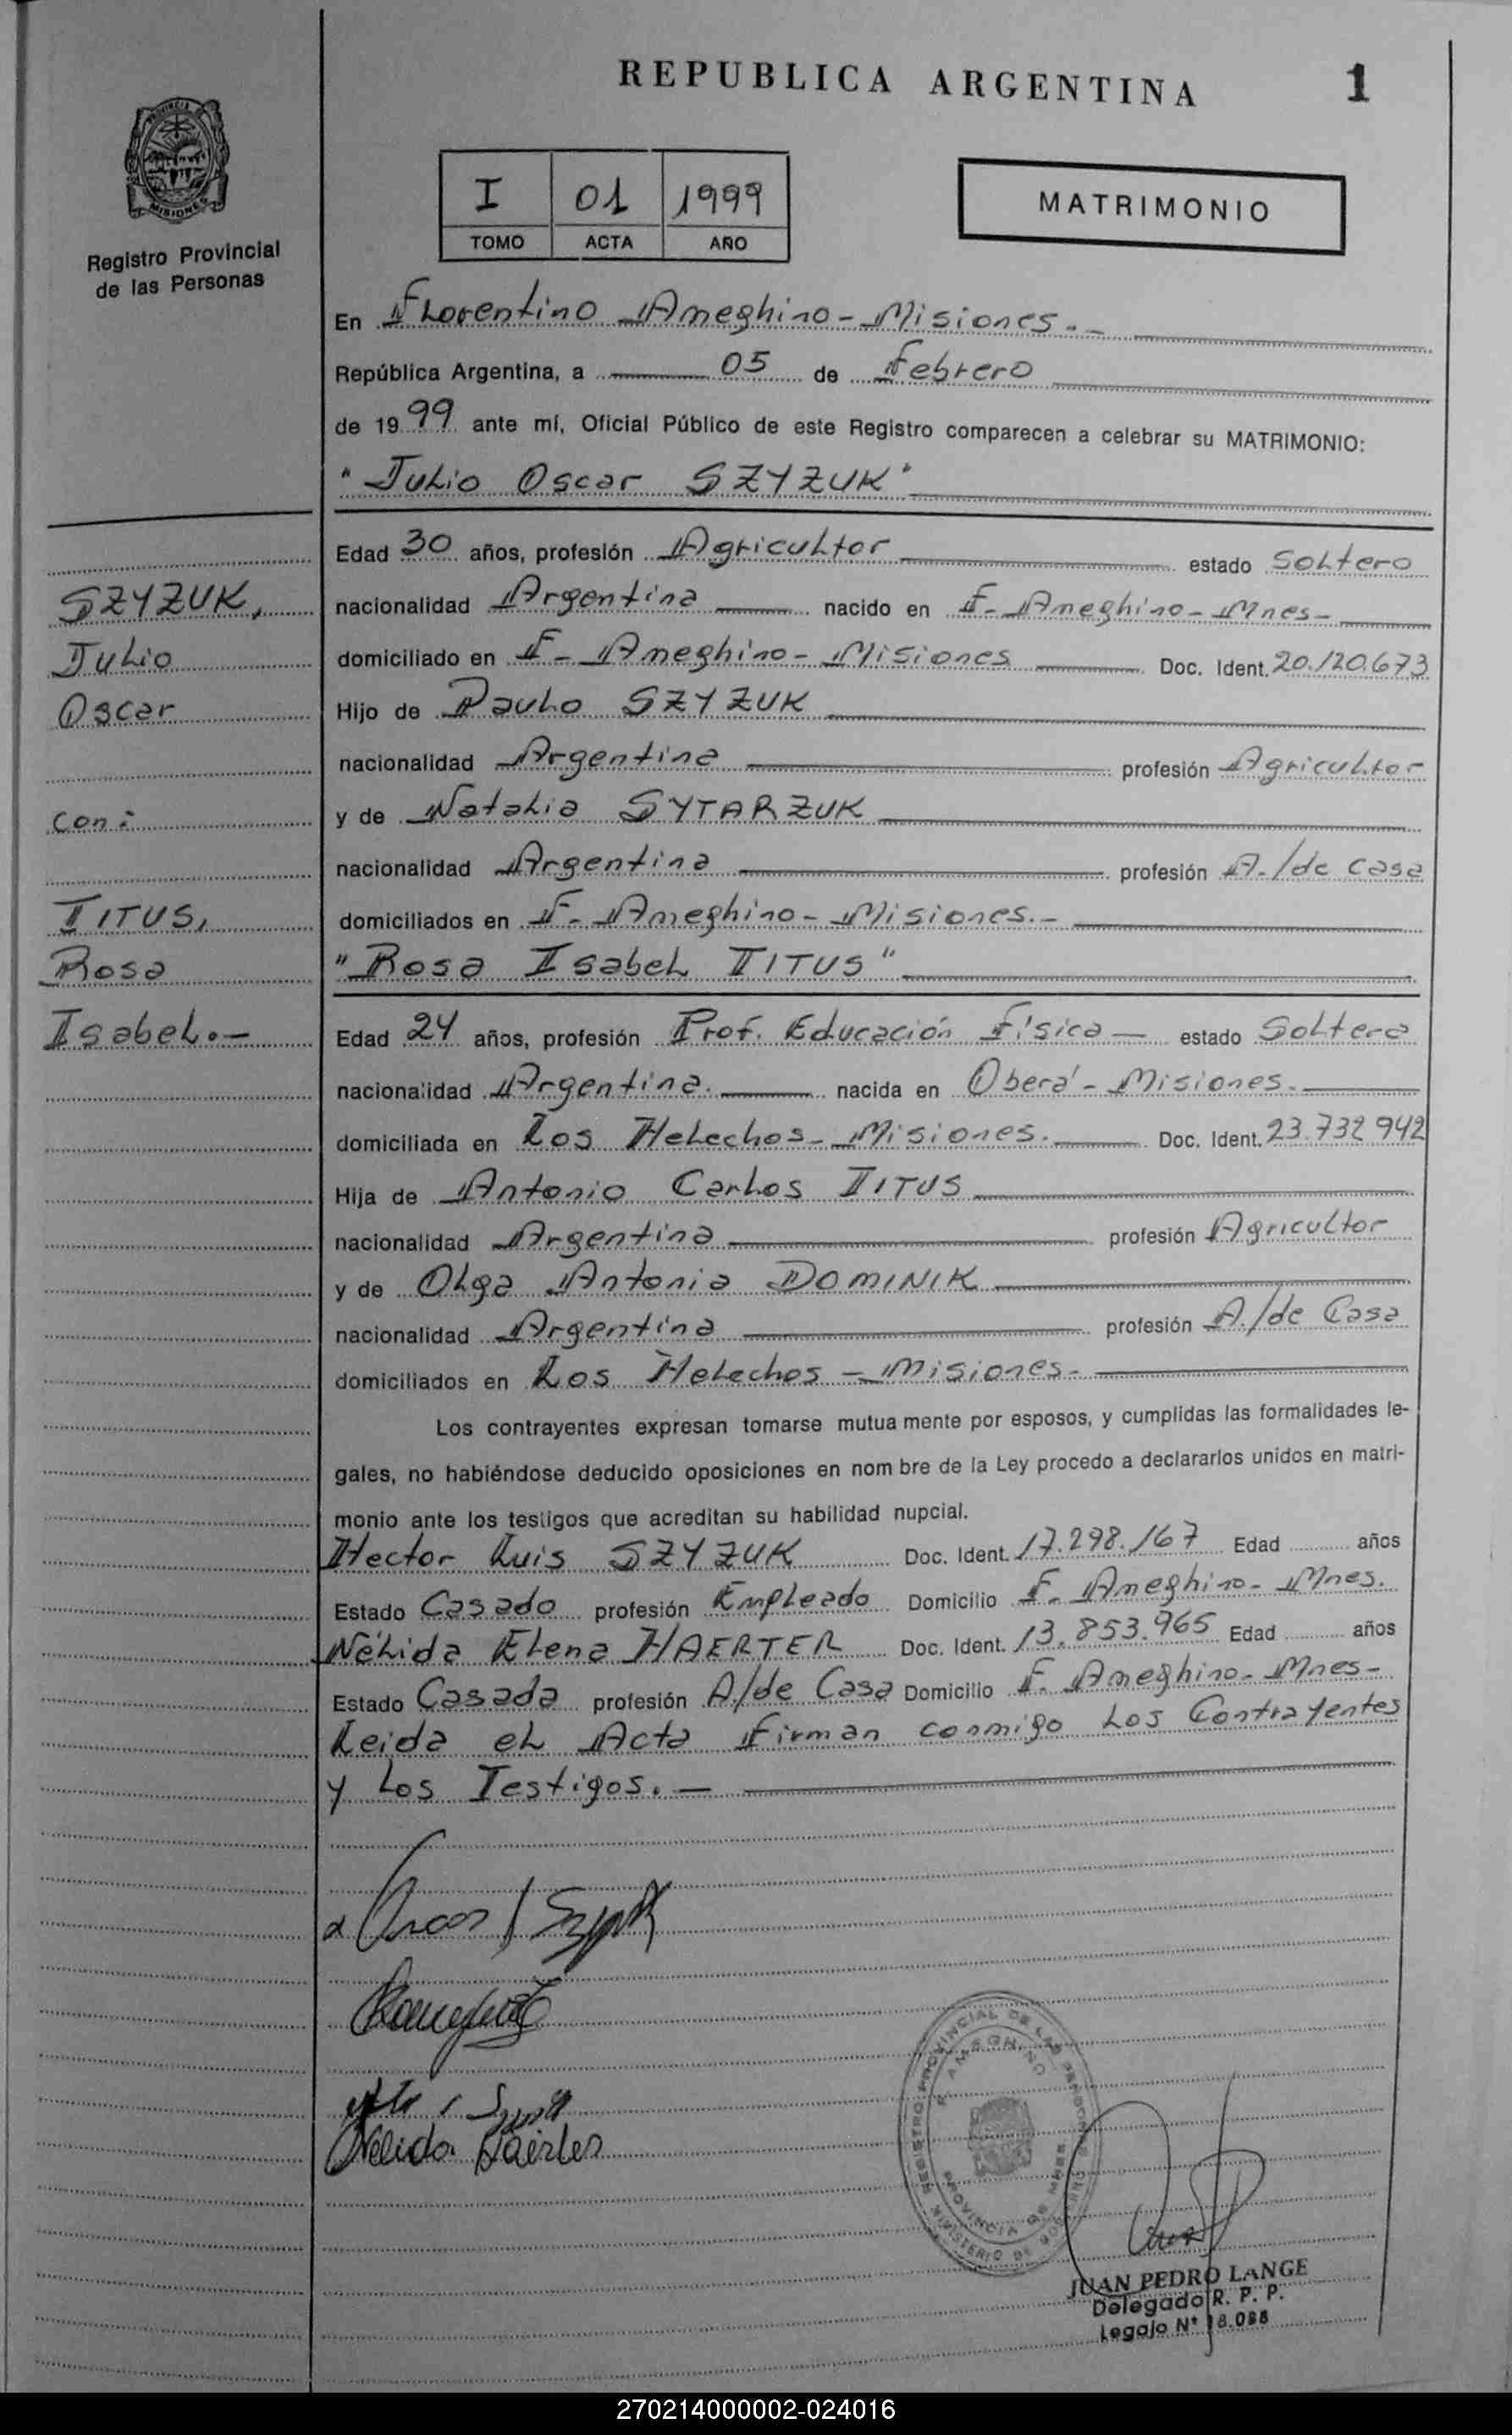 REPUBLICA ARGENTINA
1
PROVINCIA
MISIONES
Registro Provincial
de las Personas
I 01 1999
TOMO ACTA AÑO
MATRIMONIO
En Florentino Ameghino - Misiones.-
República Argentina, a 05 de Febrero
de 1999 ante mí, Oficial Público de este Registro comparecen a celebrar su MATRIMONIO:
"Julio Oscar SZYZUK"
SZYZUK,
Julio
Oscar
con:
TITUS,
Rosa
Isabel.-
Edad 30 años, profesión Agricultor estado Soltero
nacionalidad Argentina nacido en F. Ameghino - Mnes-
domiciliado en F- Ameghino - Misiones Doc. Ident. 20.120.673
Hijo de Paulo SZYZUK
nacionalidad Argentina profesión Agricultor
y de Natalia SYTARZUK
nacionalidad Argentina profesión A./de casa
domiciliados en F- Ameghino - Misiones.-
"Rosa Isabel TITUS"
Edad 24 años, profesión Prof. Educación Física - estado Soltera
nacionalidad Argentina. nacida en Oberá - Misiones.
domiciliada en Los Helechos - Misiones. Doc. Ident. 23.732 942
Hija de Antonio Carlos TITUS
nacionalidad Argentina profesión Agricultor
y de Olga Antonia DOMINIK
nacionalidad Argentina profesión A./de Casa
domiciliados en Los Helechos - Misiones-
Los contrayentes expresan tomarse mutua mente por esposos, y cumplidas las formalidades le-
gales, no habiéndose deducido oposiciones en nom bre de la Ley procedo a declararlos unidos en matri-
monio ante los testigos que acreditan su habilidad nupcial.
Hector Luis SZYZUK Doc. Ident. 17.298.167 Edad años
Estado Casado profesión Empleado Domicilio F. Ameghino - Mnes.
Nélida Elena HAERTER Doc. Ident. 13.853.965 Edad años
Estado Casada profesión A/de Casa Domicilio F. Ameghino - Mnes-
Leida el Acta Firman conmigo los Contrayentes
y los Testigos.-
Nélida Haerter
REGISTRO PROVINCIAL DE LAS PERSONAS
AMEGHINO
PROVINCIA DE MNES
MINISTERIO DE GOB
JUAN PEDRO LANGE
Delegado R. P. P.
Legajo Nº 18.088
270214000002-024016